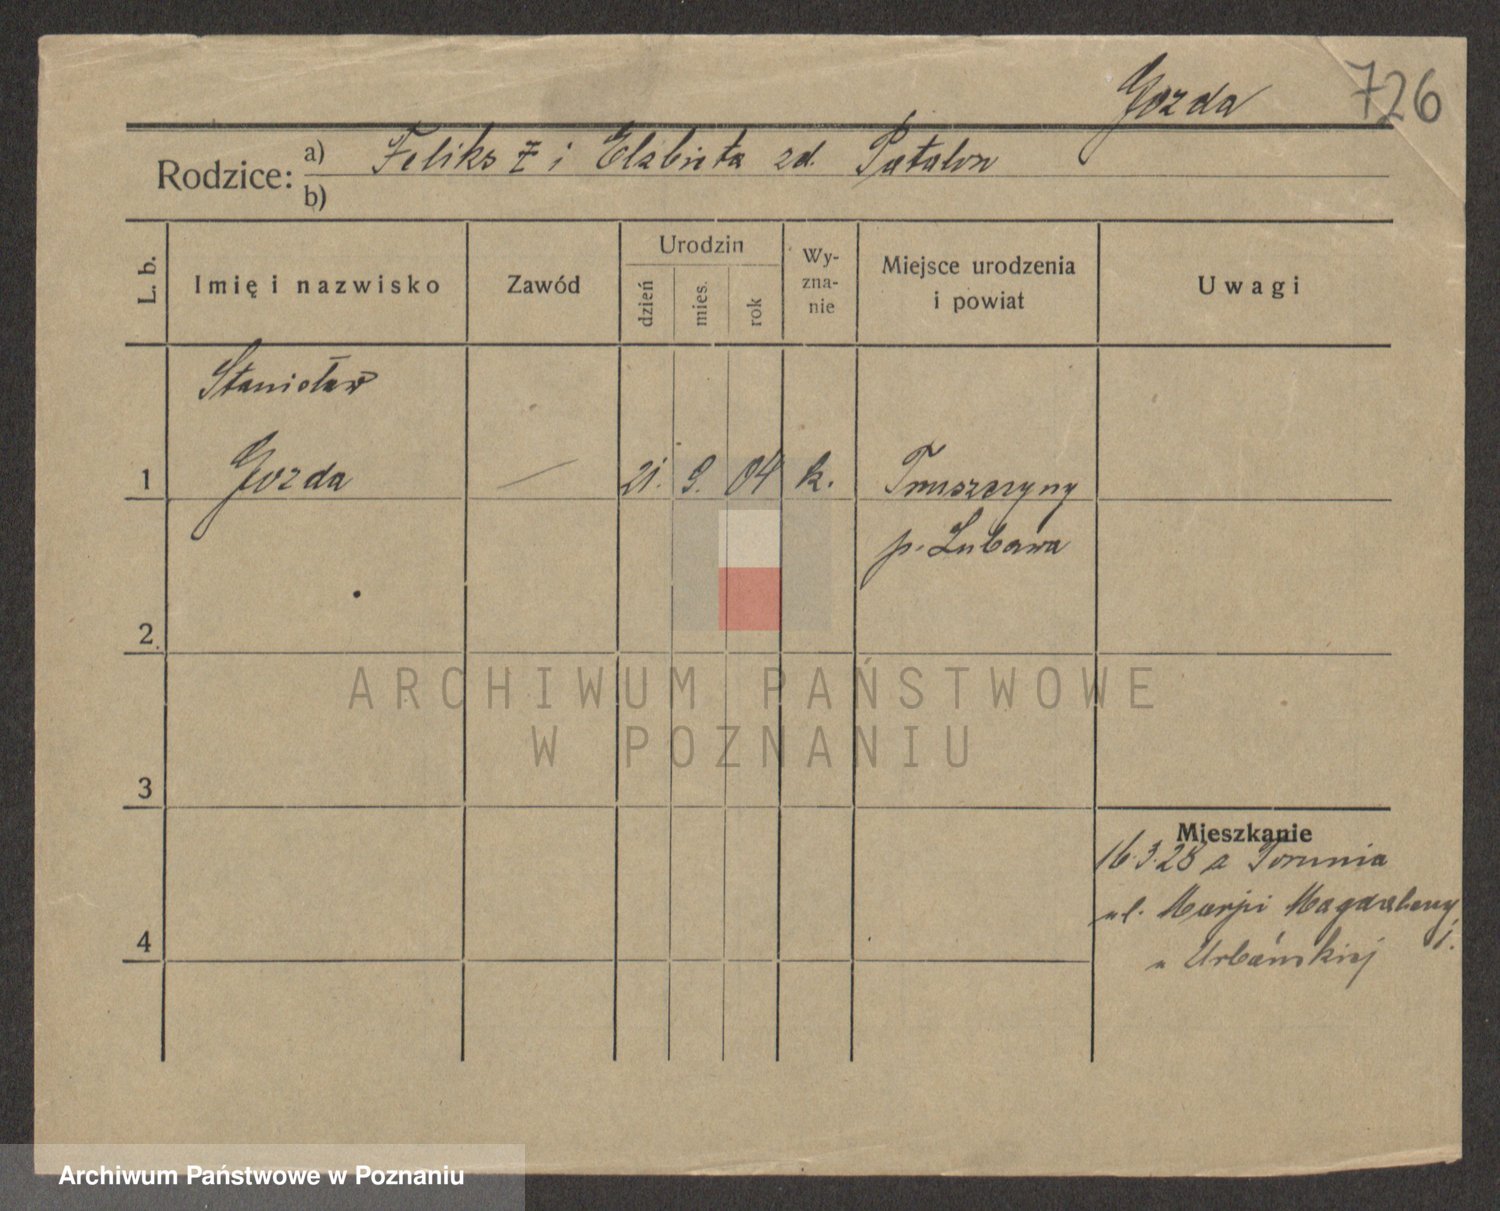 Gozda 726
Rodzice: a) Feliks i Elżbieta zd. Patalon
b)
L. b. Imię i nazwisko Zawód Urodzin dzień mies. rok Wy-zna-nie Miejsce urodzenia i powiat Uwagi
Stanisław
1 Gozda — 21. 9. 04 k. Truszczyny
p. Lubawa
2.
3
Mieszkanie
16.3.28 z Torunia
ul. Marji Magdaleny
4 u Urbańskiej
ARCHIWUM PAŃSTWOWE
W POZNANIU
Archiwum Państwowe w Poznaniu